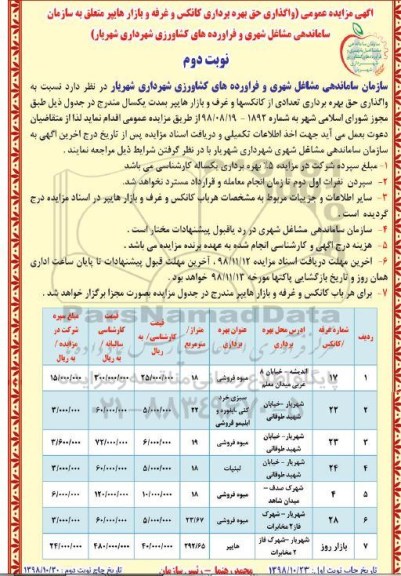 آگهی مزایده عمومی (واگذاری حق بهره برداری کانکس و غرفه و بازار هایپر متعلق به سازمان
ساماندهی مشاغل شهری و فراورده های کشاورزی شهرداری شهریار)
نوبت دوم
سازمان ساماندهی مشاغل شهری و فراورده های کشاورزی شهرداری شهریار در نظر دارد نسبت به
واگذاری حق بهره برداری تعدادی از کانکسها و غرف و بازار هایپر بمدت یکسال مندرج در جدول ذیل طبق
مجوز شورای اسلامی شهر به شماره ۱۸۹۲ - ۹۸/۰۸/۱۹ از طریق مزایده عمومی اقدام نماید لذا از متقاضیان
دعوت بعمل می آید جهت اخذ اطلاعات تکمیلی و دریافت اسناد مزایده پس از تاریخ درج آخرین آگهی به
سازمان ساماندهی مشاغل شهری شهرداری شهریار با در نظر گرفتن شرایط ذیل مراجعه نمایند .
۱- مبلغ سپرده شرکت در مزایده ۵٪ بهره برداری یکساله کارشناسی می باشد
۲- سپردن نفرات اول دوم تا زمان انجام معامله و قرارداد مسترد نخواهد شد.
۳- سایر اطلاعات و جزییات مربوط به مشخصات هرباب کانکس و غرف و بازار هایپر در اسناد مزایده درج
گردیده است .
۴- سازمان ساماندهی مشاغل شهری در رد یاقبول پیشنهادات مختار است .
۵- هزینه درج آگهی و کارشناسی انجام شده به عهده برنده مزایده می باشد .
۶- آخرین مهلت دریافت اسناد مزایده ۹۸/۱۱/۱۲ ، آخرین مهلت قبول پیشنهادات تا پایان ساعت اداری
همان روز و تاریخ بازگشایی پاکتها مورخه ۹۸/۱۱/۱۳ خواهد بود .
۷- برای هر باب کانکس و غرفه و بازار هایپر مندرج در جدول مزایده بصورت مجزا برگزار خواهد شد .
ردیف شماره غرفه /کانکس آدرس محل بهره برداری عنوان بهره برداری متراژ / مترمربع قیمت کارشناسی / به ریال قیمت کارشناسی سالیانه / به ریال مبلغ سپره شرکت در مزایده / به ریال
۱ ۱۷ اندیشه - خیابان ۸ غربی میدان معلم میوه فروشی ۱۸ ۲۵/۰۰۰/۰۰۰ ۳۰۰/۰۰۰/۰۰۰ ۱۵/۰۰۰/۰۰۰
۲ ۲۲ شهریار -خیابان شهید طوقانی سبزی خرد کنی ،آبغوره و آبلیمو فروشی ۲۲ ۵/۰۰۰/۰۰۰ ۶۰/۰۰۰/۰۰۰ ۳/۰۰۰/۰۰۰
۳ ۲۳ شهریار- خیابان شهید طوقانی میوه فروشی ۱۹ ۶/۰۰۰/۰۰۰ ۷۲/۰۰۰/۰۰۰ ۳/۶۰۰/۰۰۰
۴ ۲۴ شهریار - خیابان شهید طوقانی لبنیات ۱۸ ۵/۰۰۰/۰۰۰ ۶۰/۰۰۰/۰۰۰ ۳/۰۰۰/۰۰۰
۵ ۴ شهرک صدف – میدان شاهد میوه فروشی ۱۸ ۱۰/۰۰۰/۰۰۰ ۱۲۰/۰۰۰/۰۰۰ ۶/۰۰۰/۰۰۰
۶ ۲۸ شهریار –شهرک فاز۲ مخابرات میوه فروشی ۲۳/۶۷ ۵/۰۰۰/۰۰۰ ۶۰/۰۰۰/۰۰۰ ۳/۰۰۰/۰۰۰
۷ بازار روز شهریار –شهرک فاز ۲ مخابرات هایپر ۲۹۲/۶۵ ۴۰/۰۰۰/۰۰۰ ۴۸۰/۰۰۰/۰۰۰ ۲۴/۰۰۰/۰۰۰
تاریخ چاپ نوبت اول: ۱۳۹۸/۱۰/۲۳ محمد رهنما – رئیس سازمان تاریخ چاپ نوبت دوم: ۱۳۹۸/۱۰/۳۰